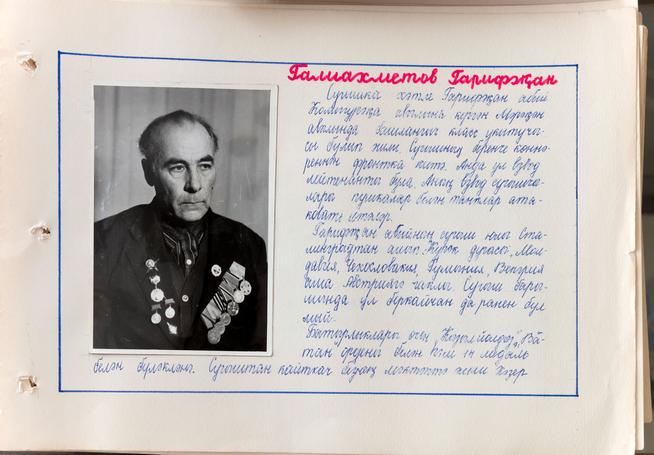 Галиахметов Гарифҗан
Сугышка хәтле Гарифҗан абый
авылына кергән
авылында башлангыч класс укытучы-
сы булып эшли. Сугышның беренче көннә-
реннән фронтка китә. Анда ул взвод
лейтенанты була. Аның взвод сугышчы-
лары пушкалар белән танклар ата-
ковать итәләр.
Гарифҗан абыйның сугыш юлы Ста-
линградтан алып, Курск дугасы, Мол-
давия, Чехословакия, Румыния, Венгрия
һәм Австриягә чаклы. Сугыш бары-
шында ул беркайчан да ранен бул-
мый.
Батырлыклары өчен "Кызыл йолдыз", Ва-
тан ордены белән һәм 14 медаль
белән бүләкләнә. Сугыштан кайткач мәктәптә эшли Хәзер